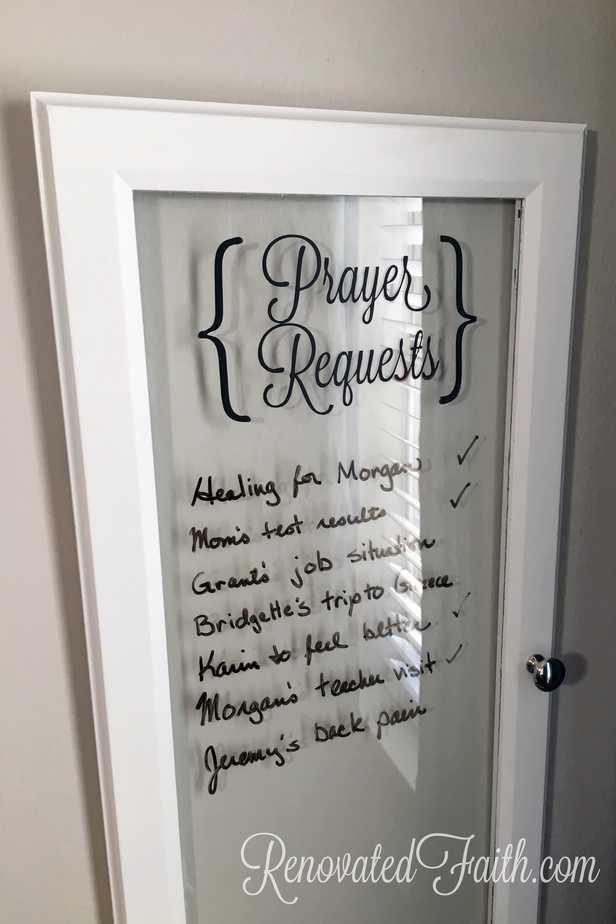 { Prayer
Requests }
Healing for Morgan ✓
Mom's test results ✓
Grant's job situation
Bridgette's trip to Greece
Karin to feel better ✓
Morgan's teacher visit ✓
Jeremy's back pain
RenovatedFaith.com